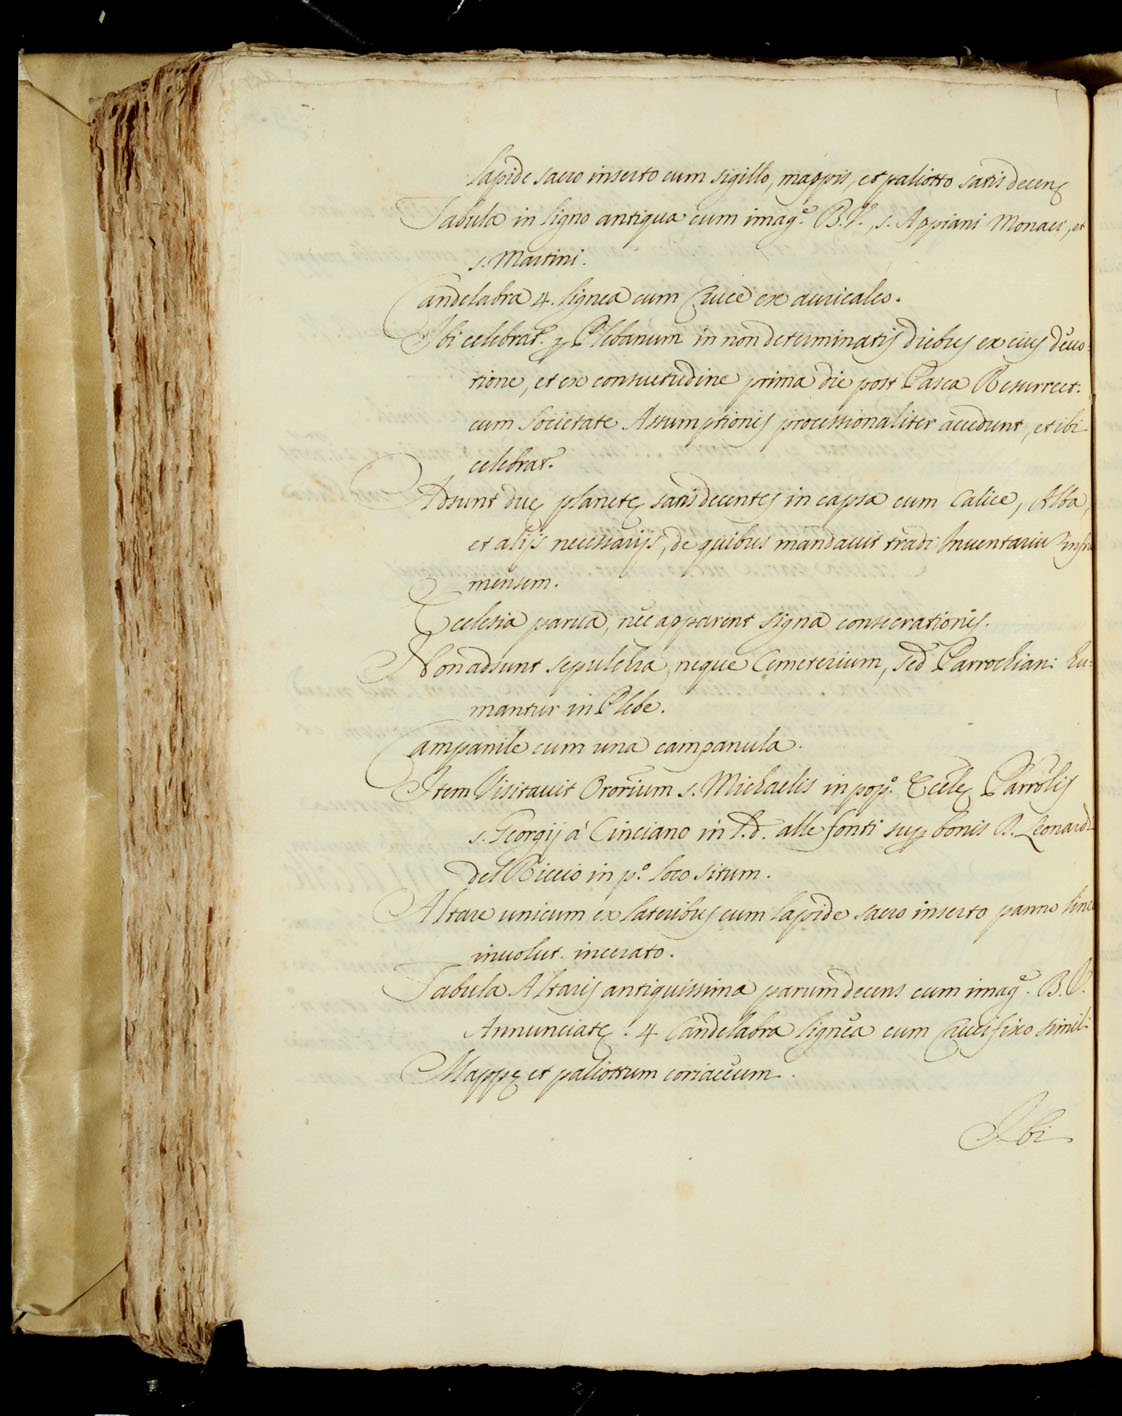 lapide sacro inserto cum sigillo, mappis, et paliotto satis decenę
Tabula in ligno antiqua cum imag.ᵉ B.V., s. Appiani Monaci, et
s. Martini.
Candelabra 4. lignea cum Cruce ex auricalco.
Ibi celebrat.ʳ p Plebanum in non determinatis diebus ex eius devo:
tione, et ex consuetudine prima die post Pasca Resurrect.
cum Societate Assumptionis processionaliter accedunt, et ibi
celebrat.ʳ
Adsunt duę planetę satis decentes in capsa cum Calice, Alba,
et alijs necessarijs, de quibus mandavit tradi Inventariu infra
mensem.
Ecclesia parva, nec apparent signa consecrationis.
Non adsunt sepulchra, neque Cemeterium, sed Parrochian: hu:
mantur in Plebe.
Campanile cum una campanula.
Item Visitavit Ororium s. Michaelis in pop.º Eccl.ę Parrolis
s. Georgij à Cinciano in l.d. alle fonti sup bonis D. Leonardi
del Riccio in p.º loco situm.
Altare unicum ex lateribus cum lapide sacro inserto panno lineo
involut. incerato.
Tabula Altaris antiquissima parum decens cum imag.ᵉ B.V.
Annunciatę. 4 Candelabra lignea cum Crucifixo simil:
Mappę et paliottum coriaceum.
Ibi